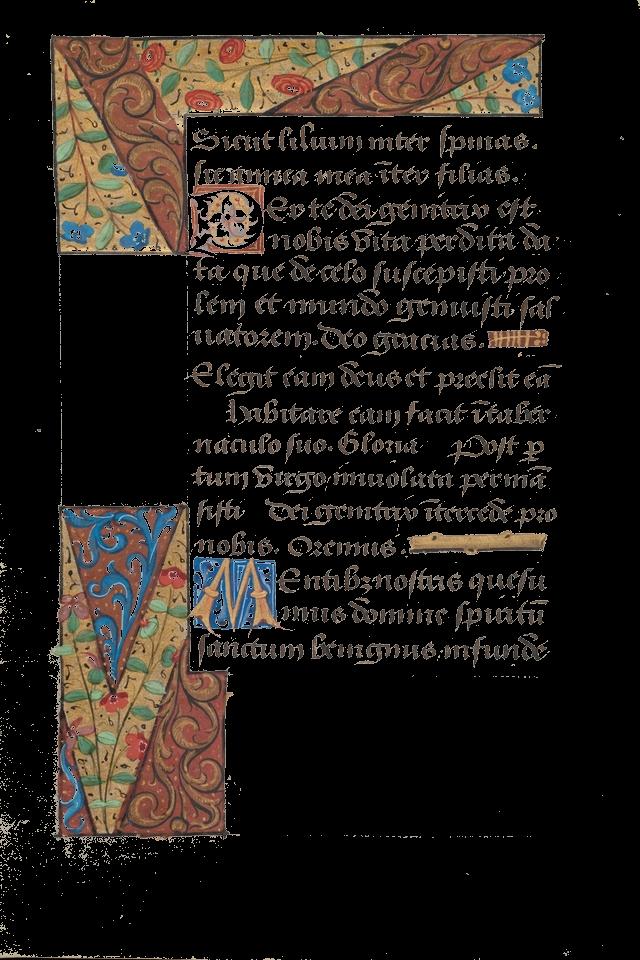 Sicut lilium inter spinas.
sic amica mea īter filias.
PEr te dei genitrix est
nobis vita perdita da
ta que de celo suscepisti pro
lem et mundo genuisti sal
uatorem. Deo gracias.
Elegit eam deus et preelit eā
habitare eam facit ī taber
naculo suo. Gloria Post p̲
tum virgo inuiolata permā
sisti Dei genitrix ītercede pro
nobis. Oremus.
MEntibꝫ nostris quesu
mus domine spiritū
sanctum benignus infunde